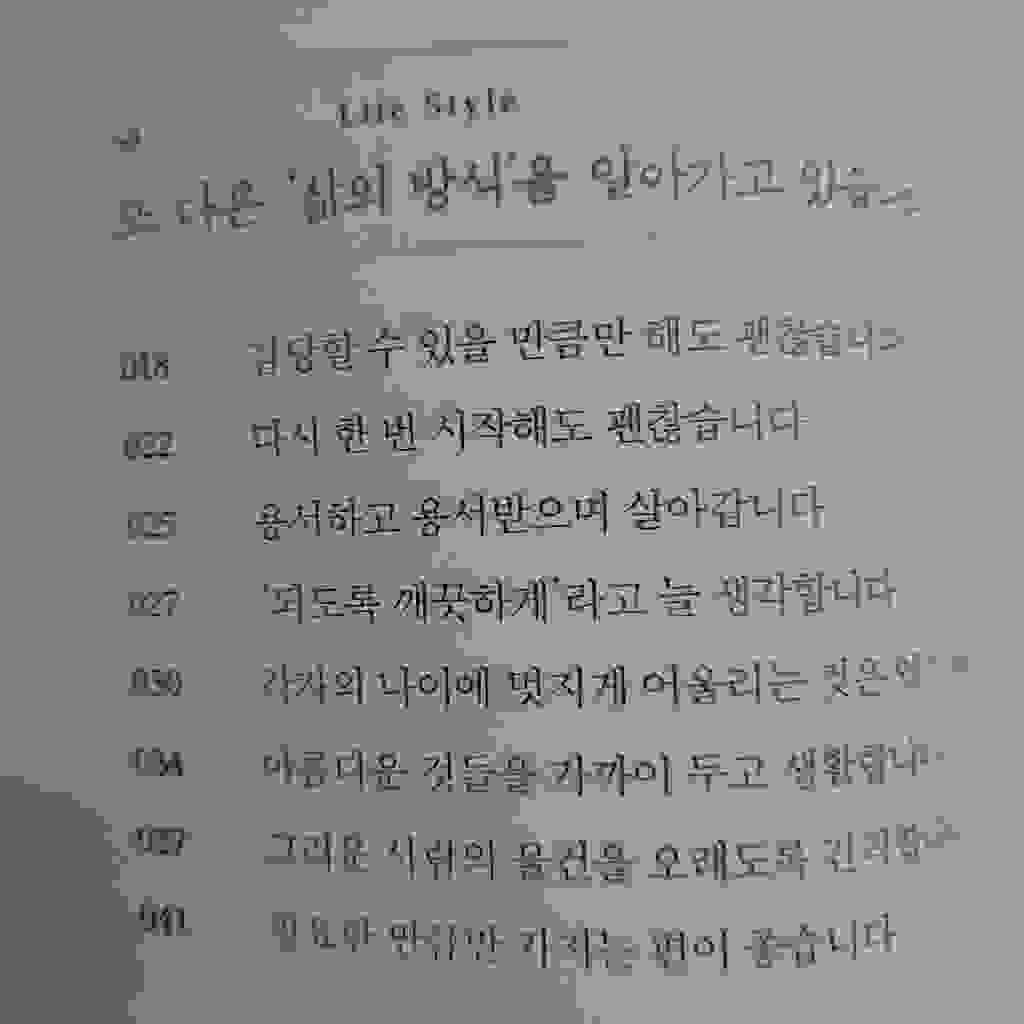 Life Style
다운 '삶의 방식'을 알아가고
018 감당할 수 있을 만큼만 해도 괜찮습니다
022 다시 한 번 시작해도 괜찮습니다
025 용서하고 용서받으며 살아갑니다
027 '되도록 깨끗하게'라고 늘 생각합니다
030 각자의 나이에 멋지게 어울리는 것은
034 아름다운 것들을 가까이 두고 생활합니다
037 그리운 사람의 물건을 오래도록 간직합니다
041 필요한 만큼만 가지는 편이 좋습니다